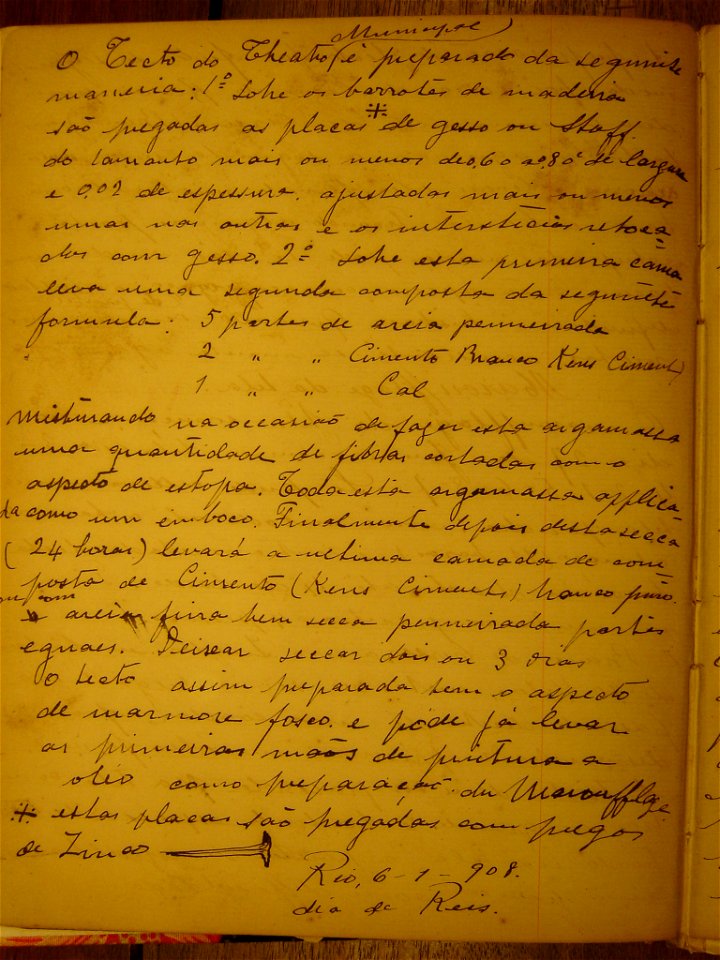 Municipal
O Tecto do Theatro é preparado da seguinte
maneira: 1º Sobre os barrotes de madeira
são pregadas as placas de gesso ou Staff.
do tamanho mais ou menos de 0,60 a 0,80 de largura
e 0,02 de espessura. ajustadas mais ou menos
umas nas outras e os intersticios retoca
dos com gesso. 2º Sobre esta primeira cama
leva uma segunda composta da seguinte
formula: 5 partes de areia penneirada
2 " " Cimento Branco Kens Ciment)
1 " " Cal
Misturando na occasião de fazer esta argamassa
uma quantidade de fibras cortadas com o
aspecto de estopa. Toda esta argamassa applica
da como um emboco. Finalmente depois desta secca
(24 horas) levará a ultima camada de com
posta de Cimento (Kens Ciments) branco puro.
ou com
areia fina bem secca penneirada partes
eguaes. Deixar seccar dois ou 3 dias
O tecto assim preparada tem o aspecto
de marmore fosco. e póde já levar
as primeiras mãos de pintura a
olio como preparação du Marouflage.
⁜ estas placas são pregadas com pregos
de Zinco
Rio, 6-1-908.
dia de Reis.